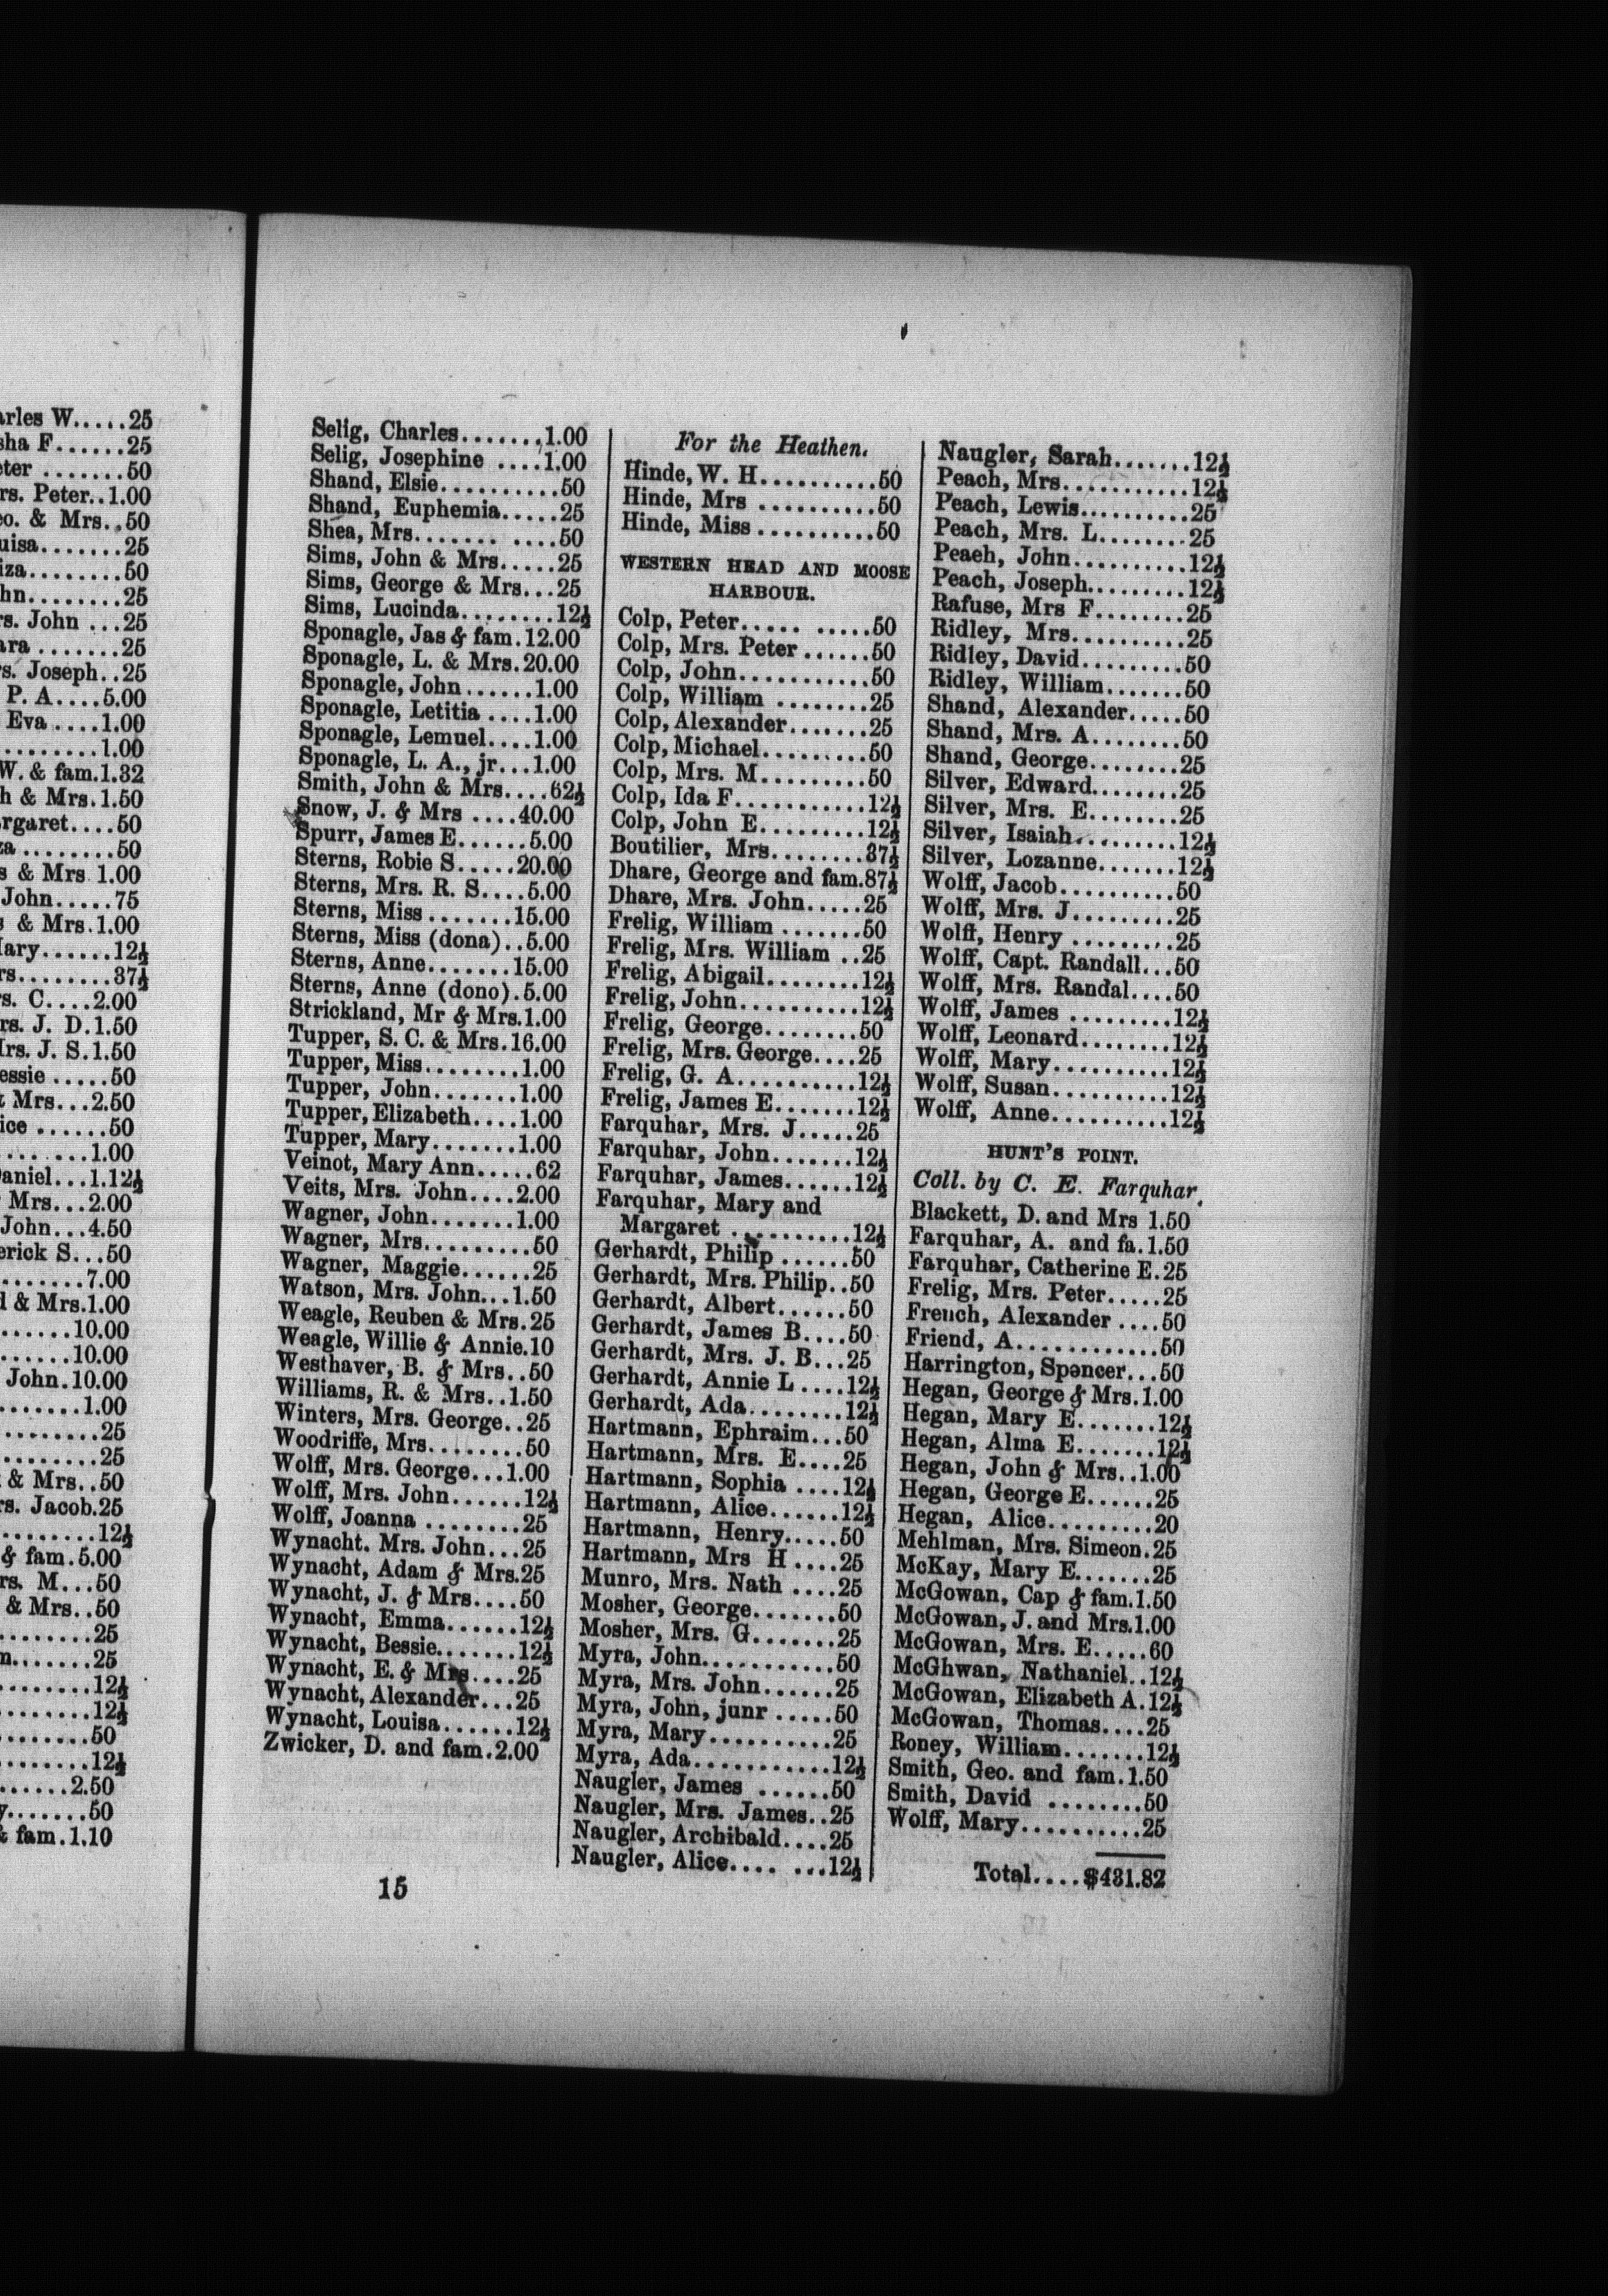 arles W.....25
sha F......25
eter .......50
rs. Peter..1.00
eo. & Mrs..50
uisa.......25
iza........50
hn........25
rs. John ...25
ara .......25
s. Joseph..25
P. A....5.00
Eva ....1.00
.........1.00
W. & fam.1.32
h & Mrs.1.50
rgaret....50
za ........50
s & Mrs 1.00
John.....75
s & Mrs.1.00
Mary......12½
rs........37½
s. C....2.00
rs. J. D.1.50
Mrs. J. S.1.50
essie .....50
& Mrs...2.50
ice ......50
........1.00
Daniel...1.12½
Mrs...2.00
John...4.50
erick S...50
........7.00
d & Mrs.1.00
......10.00
......10.00
John.10.00
........1.00
.........25
.........25
& Mrs..50
rs. Jacob.25
.........12½
& fam.5.00
rs. M...50
& Mrs..50
.........25
n.......25
.........12½
.........12½
........50
.........12½
......2.50
y.......50
& fam.1.10
Selig, Charles.......1.00
Selig, Josephine ....1.00
Shand, Elsie..........50
Shand, Euphemia.....25
Shea, Mrs....... ....50
Sims, John & Mrs.....25
Sims, George & Mrs...25
Sims, Lucinda........12½
Sponagle, Jas & fam.12.00
Sponagle, L. & Mrs.20.00
Sponagle, John......1.00
Sponagle, Letitia ....1.00
Sponagle, Lemuel....1.00
Sponagle, L. A., jr...1.00
Smith, John & Mrs....62½
Snow, J. & Mrs ....40.00
Spurr, James E......5.00
Sterns, Robie S.....20.00
Sterns, Mrs. R. S....5.00
Sterns, Miss .......15.00
Sterns, Miss (dona)..5.00
Sterns, Anne.......15.00
Sterns, Anne (dono).5.00
Strickland, Mr & Mrs.1.00
Tupper, S. C. & Mrs.16.00
Tupper, Miss........1.00
Tupper, John.......1.00
Tupper, Elizabeth....1.00
Tupper, Mary.......1.00
Veinot, Mary Ann.....62
Veits, Mrs. John....2.00
Wagner, John.......1.00
Wagner, Mrs.........50
Wagner, Maggie......25
Watson, Mrs. John...1.50
Weagle, Reuben & Mrs.25
Weagle, Willie & Annie.10
Westhaver, B. & Mrs..50
Williams, R. & Mrs..1.50
Winters, Mrs. George..25
Woodriffe, Mrs........50
Wolff, Mrs. George...1.00
Wolff, Mrs. John......12½
Wolff, Joanna ........25
Wynacht. Mrs. John...25
Wynacht, Adam & Mrs.25
Wynacht, J. & Mrs....50
Wynacht, Emma......12½
Wynacht, Bessie.......12½
Wynacht, E. & Mrs....25
Wynacht, Alexander...25
Wynacht, Louisa......12½
Zwicker, D. and fam.2.00
15
For the Heathen.
Hinde, W. H..........50
Hinde, Mrs ..........50
Hinde, Miss ..........50
WESTERN HEAD AND MOOSE
HARBOUR.
Colp, Peter..... .....50
Colp, Mrs. Peter ......50
Colp, John...........50
Colp, William ........25
Colp, Alexander.......25
Colp, Michael.........50
Colp, Mrs. M.........50
Colp, Ida F...........12½
Colp, John E.........12½
Boutilier, Mrs........37½
Dhare, George and fam.87½
Dhare, Mrs. John.....25
Frelig, William .......50
Frelig, Mrs. William ..25
Frelig, Abigail........12½
Frelig, John..........12½
Frelig, George........50
Frelig, Mrs. George....25
Frelig, G. A..........12½
Frelig, James E.......12½
Farquhar, Mrs. J.....25
Farquhar, John.......12½
Farquhar, James......12½
Farquhar, Mary and
Margaret ..........12½
Gerhardt, Philip ......50
Gerhardt, Mrs. Philip..50
Gerhardt, Albert......50
Gerhardt, James B....50
Gerhardt, Mrs. J. B...25
Gerhardt, Annie L ....12½
Gerhardt, Ada........12½
Hartmann, Ephraim...50
Hartmann, Mrs. E....25
Hartmann, Sophia ....12½
Hartmann, Alice......12½
Hartmann, Henry.....50
Hartmann, Mrs H ....25
Munro, Mrs. Nath ....25
Mosher, George.......50
Mosher, Mrs. G.......25
Myra, John...........50
Myra, Mrs. John......25
Myra, John, junr .....50
Myra, Mary..........25
Myra, Ada...........12½
Naugler, James ......50
Naugler, Mrs. James..25
Naugler, Archibald....25
Naugler, Alice.... ...12½
Naugler, Sarah.......12½
Peach, Mrs...........12½
Peach, Lewis..........25
Peach, Mrs. L........25
Peaeh, John..........12½
Peach, Joseph.........12½
Rafuse, Mrs F........25
Ridley, Mrs..........25
Ridley, David.........50
Ridley, William.......50
Shand, Alexander.....50
Shand, Mrs. A........50
Shand, George........25
Silver, Edward........25
Silver, Mrs. E........25
Silver, Isaiah.........12½
Silver, Lozanne.......12½
Wolff, Jacob..........50
Wolff, Mrs. J.........25
Wolff, Henry .........25
Wolff, Capt. Randall...50
Wolff, Mrs. Randal....50
Wolff, James .........12½
Wolff, Leonard........12½
Wolff, Mary..........12½
Wolff, Susan..........12½
Wolff, Anne..........12½
HUNT'S POINT.
Coll. by C. E. Farquhar.
Blackett, D. and Mrs 1.50
Farquhar, A. and fa.1.50
Farquhar, Catherine E.25
Frelig, Mrs. Peter.....25
French, Alexander ....50
Friend, A............50
Harrington, Spencer...50
Hegan, George & Mrs.1.00
Hegan, Mary E.......12½
Hegan, Alma E.......12½
Hegan, John & Mrs..1.00
Hegan, George E......25
Hegan, Alice.........20
Mehlman, Mrs. Simeon.25
McKay, Mary E.......25
McGowan, Cap & fam.1.50
McGowan, J. and Mrs.1.00
McGowan, Mrs. E.....60
McGhwan, Nathaniel..12½
McGowan, Elizabeth A.12½
McGowan, Thomas....25
Roney, William.......12½
Smith, Geo. and fam.1.50
Smith, David ........50
Wolff, Mary..........25
Total....$431.82